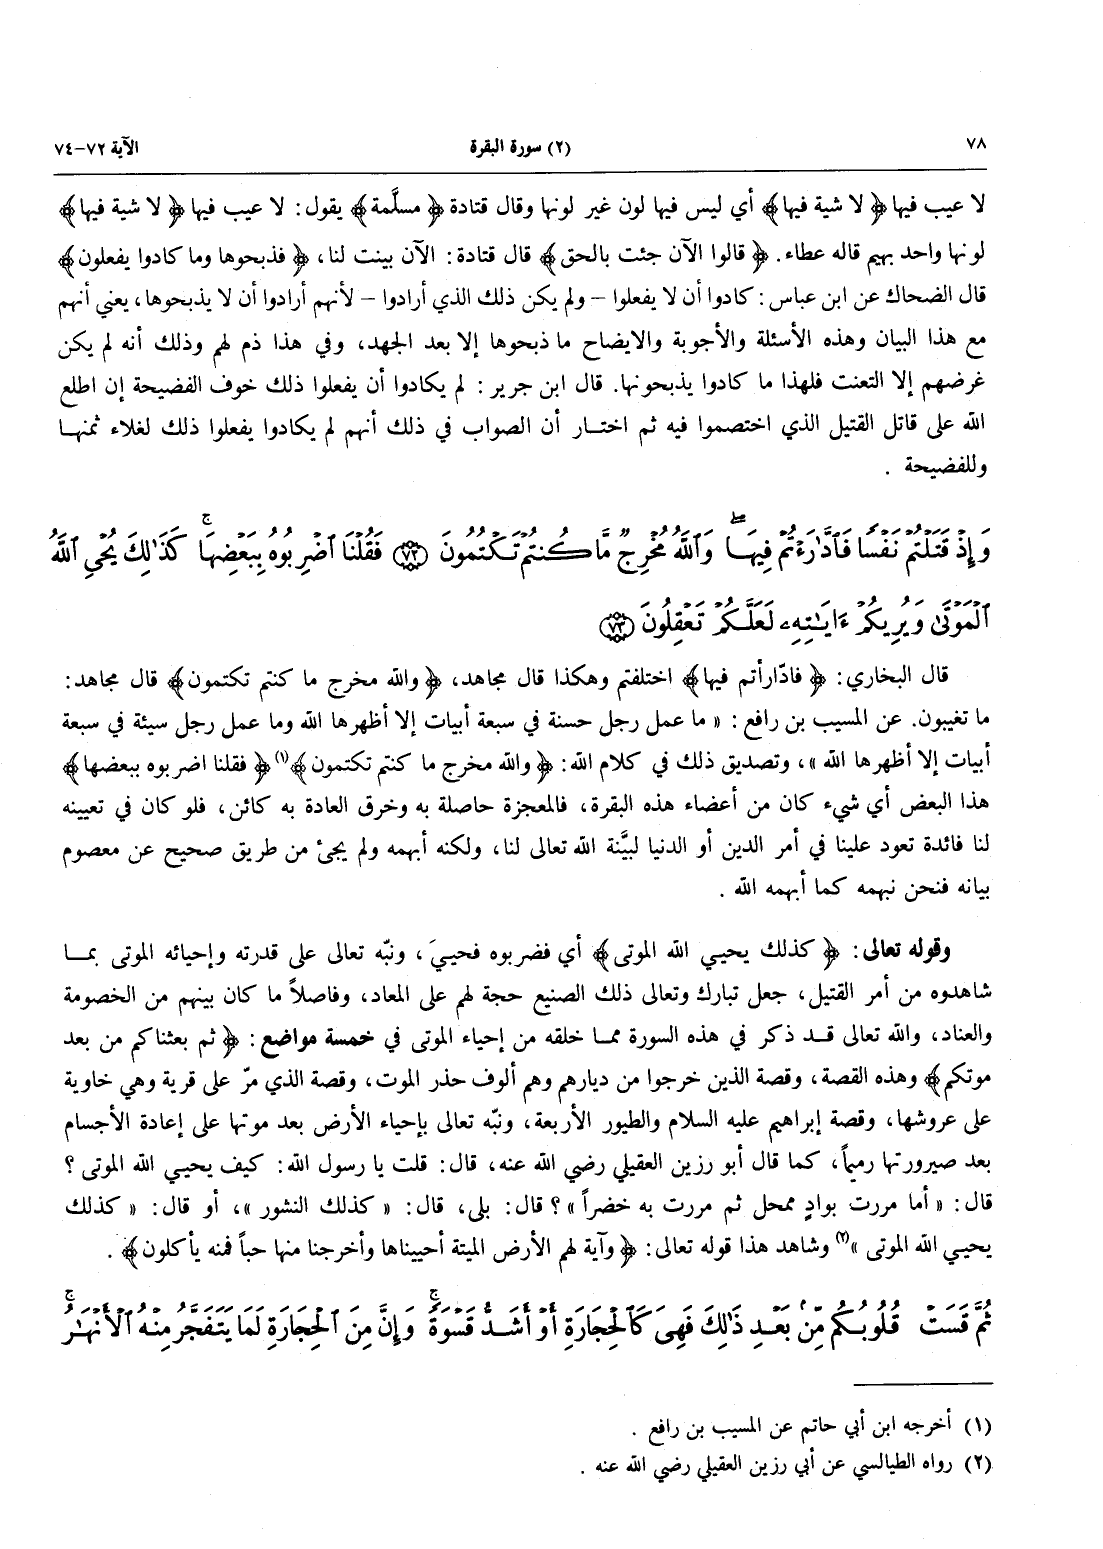 ٧٨ (٢) سورة البقرة الآية ٧٢-٧٤
لا عيب فيها ﴿ لا شية فيها﴾ أي ليس فيها لون غير لونها وقال قتادة ﴿ مسلَّمة﴾ يقول: لا عيب فيها ﴿ لا شية فيها﴾
لونها واحد بهيم قاله عطاء. ﴿ قالوا الآن جئت بالحق﴾ قال قتادة: الآن بينت لنا، ﴿ فذبحوها وما كادوا يفعلون﴾
قال الضحاك عن ابن عباس: كادوا أن لا يفعلوا – ولم يكن ذلك الذي أرادوا – لأنهم أرادوا أن لا يذبحوها، يعني أنهم
مع هذا البيان وهذه الأسئلة والأجوبة والايضاح ما ذبحوها إلا بعد الجهد، وفي هذا ذم لهم وذلك أنه لم يكن
غرضهم إلا التعنت فلهذا ما كادوا يذبحونها. قال ابن جرير : لم يكادوا أن يفعلوا ذلك خوف الفضيحة إن اطلع
الله على قاتل القتيل الذي اختصموا فيه ثم اختار أن الصواب في ذلك أنهم لم يكادوا يفعلوا ذلك لغلاء ثمنها
وللفضيحة .
وَإِذْ قَتَلْتُمْ نَفْسًا فَٱدَّٰرَْٰٔتُمْ فِيهَا ۖ وَٱللَّهُ مُخْرِجٌ مَّا كُنتُمْ تَكْتُمُونَ ﴿٧٢﴾ فَقُلْنَا ٱضْرِبُوهُ بِبَعْضِهَا ۚ كَذَٰلِكَ يُحْىِ ٱللَّهُ
ٱلْمَوْتَىٰ وَيُرِيكُمْ ءَايَٰتِهِۦ لَعَلَّكُمْ تَعْقِلُونَ ﴿٧٣﴾
قال البخاري: ﴿ فادّارأتم فيها﴾ اختلفتم وهكذا قال مجاهد، ﴿ والله مخرج ما كنتم تكتمون﴾ قال مجاهد:
ما تغيبون. عن المسيب بن رافع : « ما عمل رجل حسنة في سبعة أبيات إلا أظهرها الله وما عمل رجل سيئة في سبعة
أبيات إلا أظهرها الله »، وتصديق ذلك في كلام الله: ﴿ والله مخرج ما كنتم تكتمون﴾(١) ﴿ فقلنا اضربوه ببعضها﴾
هذا البعض أي شيء كان من أعضاء هذه البقرة، فالمعجزة حاصلة به وخرق العادة به كائن، فلو كان في تعيينه
لنا فائدة تعود علينا في أمر الدين أو الدنيا لبيَّنة الله تعالى لنا، ولكنه أبهمه ولم يجئ من طريق صحيح عن معصوم
بيانه فنحن نبهمه كما أبهمه الله .
وقوله تعالى: ﴿ كذلك يحيي الله الموتى﴾ أي فضربوه فحييَ، ونبّه تعالى على قدرته وإحيائه الموتى بما
شاهدوه من أمر القتيل، جعل تبارك وتعالى ذلك الصنيع حجة لهم على المعاد، وفاصلاً ما كان بينهم من الخصومة
والعناد، والله تعالى قد ذكر في هذه السورة مما خلقه من إحياء الموتى في خمسة مواضع: ﴿ ثم بعثناكم من بعد
موتكم﴾ وهذه القصة، وقصة الذين خرجوا من ديارهم وهم ألوف حذر الموت، وقصة الذي مرّ على قرية وهي خاوية
على عروشها، وقصة إبراهيم عليه السلام والطيور الأربعة، ونبّه تعالى بإحياء الأرض بعد موتها على إعادة الأجسام
بعد صيرورتها رميماً، كما قال أبو رزين العقيلي رضي الله عنه، قال: قلت يا رسول الله: كيف يحيي الله الموتى ؟
قال: « أما مررت بوادٍ ممحل ثم مررت به خضراً »؟ قال: بلى، قال: « كذلك النشور »، أو قال: « كذلك
يحيي الله الموتى »(٢) وشاهد هذا قوله تعالى: ﴿ وآية لهم الأرض الميتة أحييناها وأخرجنا منها حباً فمنه يأكلون﴾ .
ثُمَّ قَسَتْ قُلُوبُكُم مِّنۢ بَعْدِ ذَٰلِكَ فَهِىَ كَٱلْحِجَارَةِ أَوْ أَشَدُّ قَسْوَةً ۚ وَإِنَّ مِنَ ٱلْحِجَارَةِ لَمَا يَتَفَجَّرُ مِنْهُ ٱلْأَنْهَٰرُ ۚ
(١) أخرجه ابن أبي حاتم عن المسيب بن رافع .
(٢) رواه الطيالسي عن أبي رزين العقيلي رضي الله عنه .